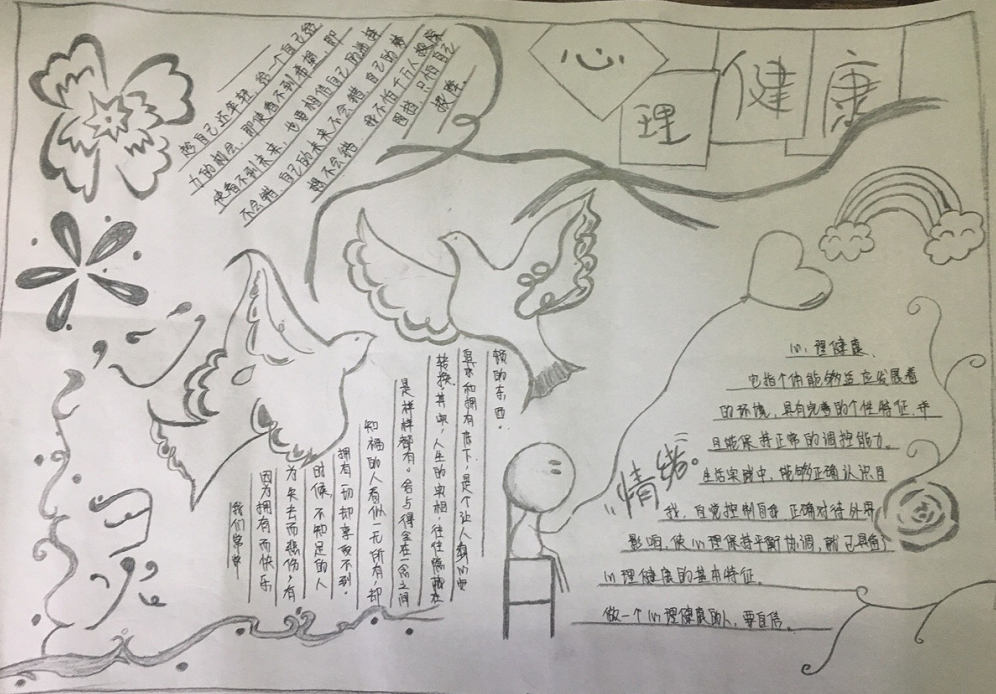 心理健康
趁自己还年轻,给一个自己努
力的机会,即使看不到希望,即
使看不到未来,也要相信自己的选择
不会错,自己的未来不会错,自己的梦
想不会错.我不怕千万人
挡,只怕自己
投降。
我们常常
因为拥有而快乐
为失去而悲伤,有
时候,不知足的人
拥有一切却享取不到.
知福的人看似一无所有,却
是样样都有。舍与得全在一念之间
转换,其中,人生的实相,往往隐藏在
求和拥有底下,是个让人
顿的东西.
“情绪”
心理健康、
它指个体能够适应发展着
的环境,具有完善的个性特征,并
且能保持正常的调控能力。
生活实践中,能够正确认识自
我,自觉控制自我,正确对待外界
影响,使心理保持平衡协调,就已具备
心理健康的基本特征.
做一个心理健康的人,要自信.